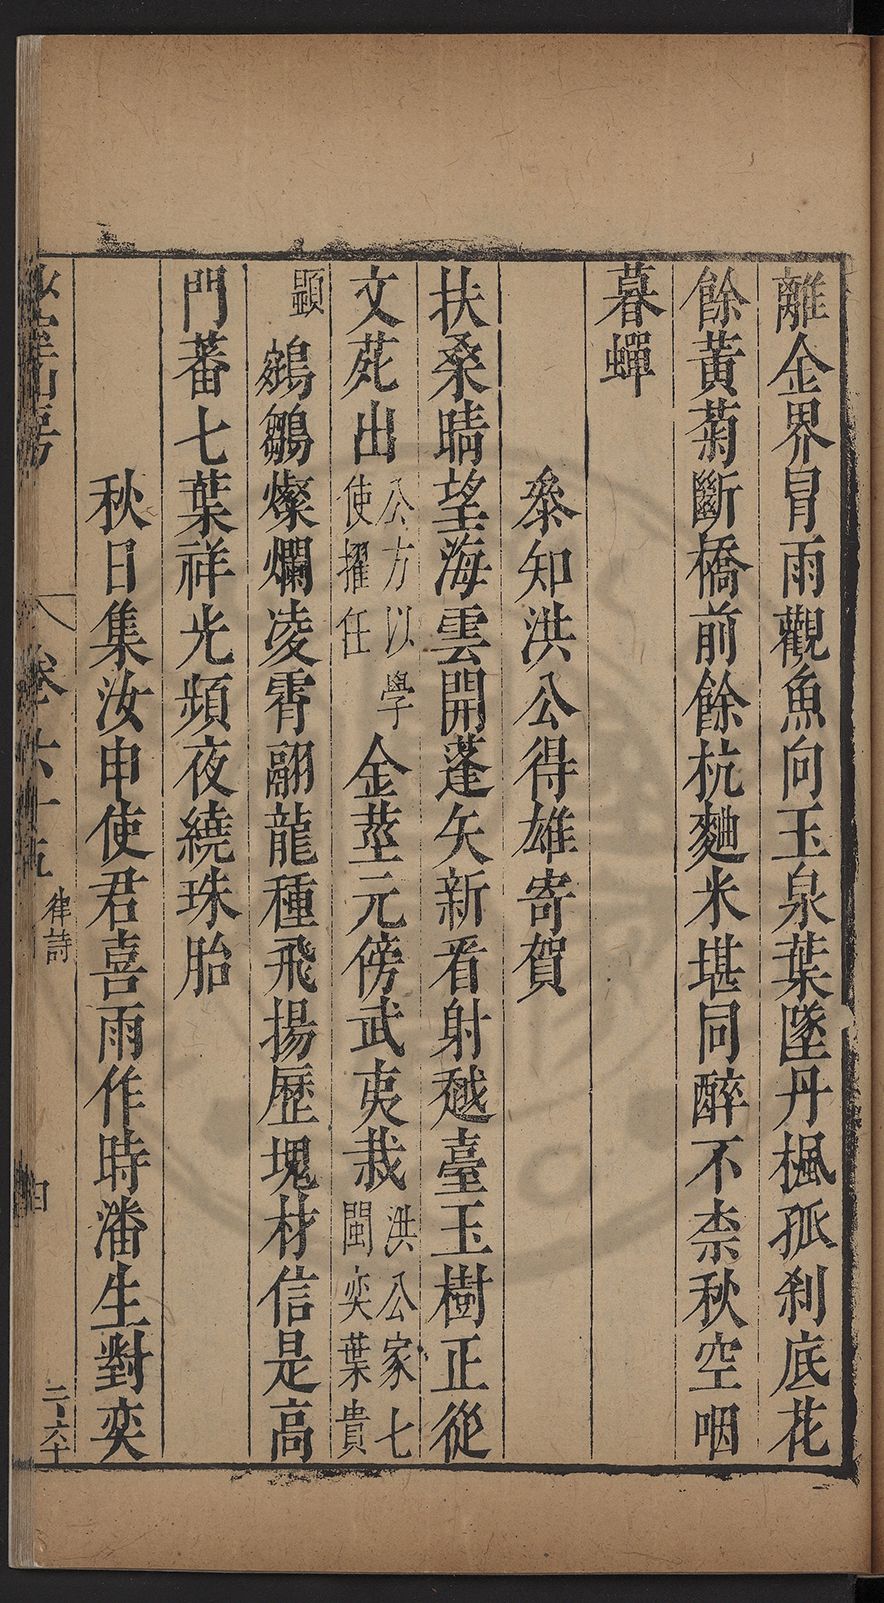 離金界冒雨觀魚向玉泉葉墜丹楓孤刹底花
餘黃菊斷橋前餘杭麯米堪同醉不柰秋空咽
暮蟬
叅知洪公得雄寄賀
扶桑晴望海雲開蓬矢新看射越臺玉樹正從
文苑出公方以學使擢任金莖元傍武夷栽洪公家七閩奕葉貴
顯鵷鶵燦爛凌霄翮龍種飛揚歷塊材信是高
門蕃七葉祥光頻夜繞珠胎
秋日集汝申使君喜雨作時潘生對奕
山房
卷六十五
律詩
二十六